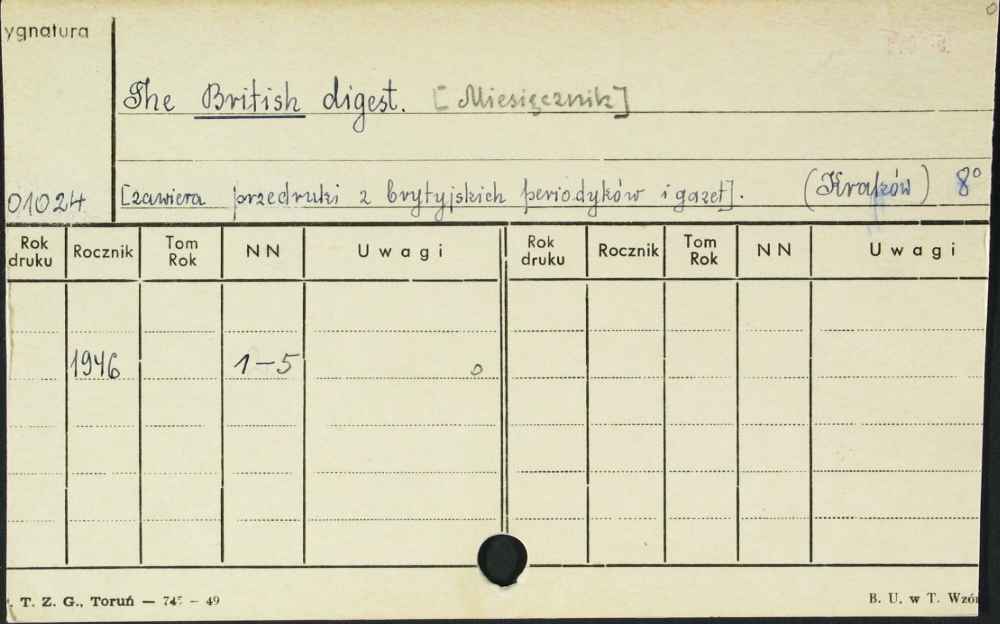 ygnatura
The British digest. [Miesięcznik]
01024 [zawiera przedruki z brytyjskich periodyków i gazet]. (Kraków) 8°
Rok druku Rocznik Tom Rok NN Uwagi Rok druku Rocznik Tom Rok NN Uwagi
1946 1-5 o
. T. Z. G., Toruń — 745 — 49 B. U. w T. Wzór